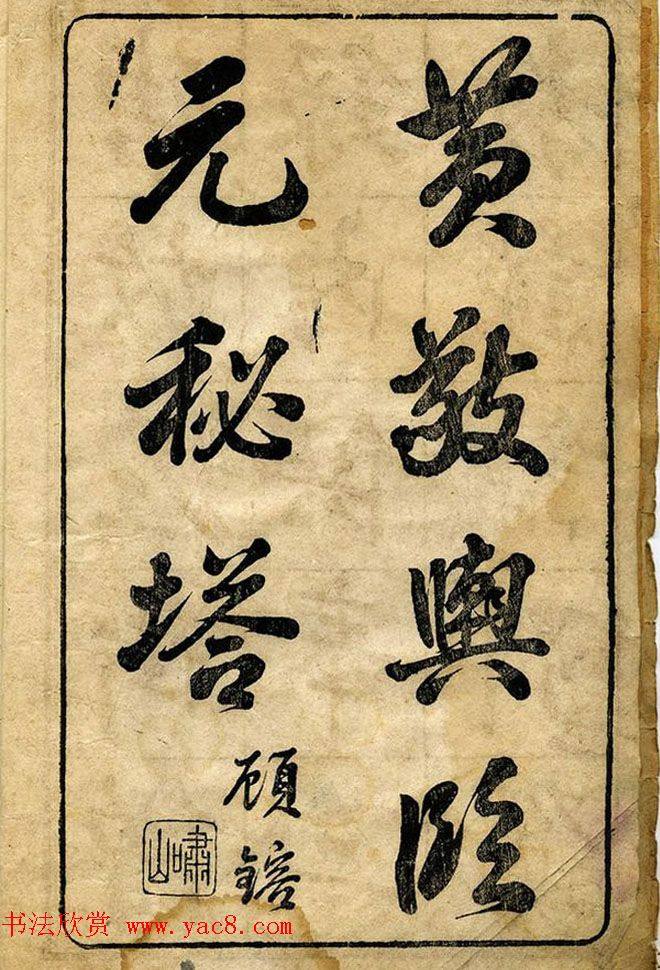 黄敬輿臨
元秘塔
顧鎔
嘯山
书法欣赏 www.yac8.com